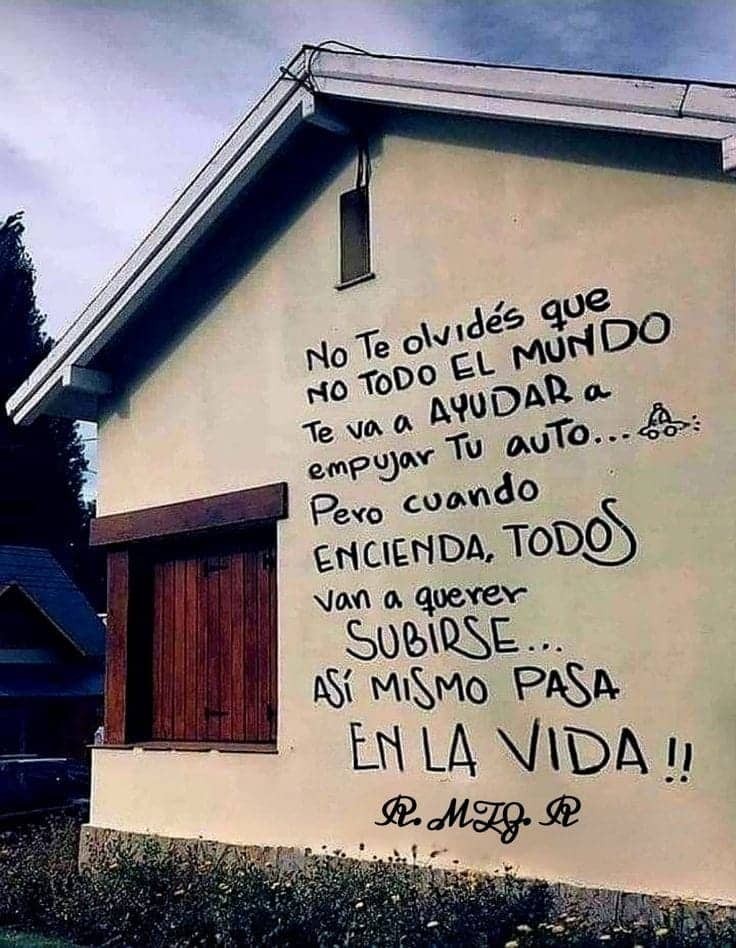 No Te olvidés que
NO TODO EL MUNDO
Te va a AYUDAR a
empujar Tu auTo...
Pero cuando
ENCIENDA, TODOS
van a querer
SUBIRSE...
ASÍ MISMO PASA
EN LA VIDA !!